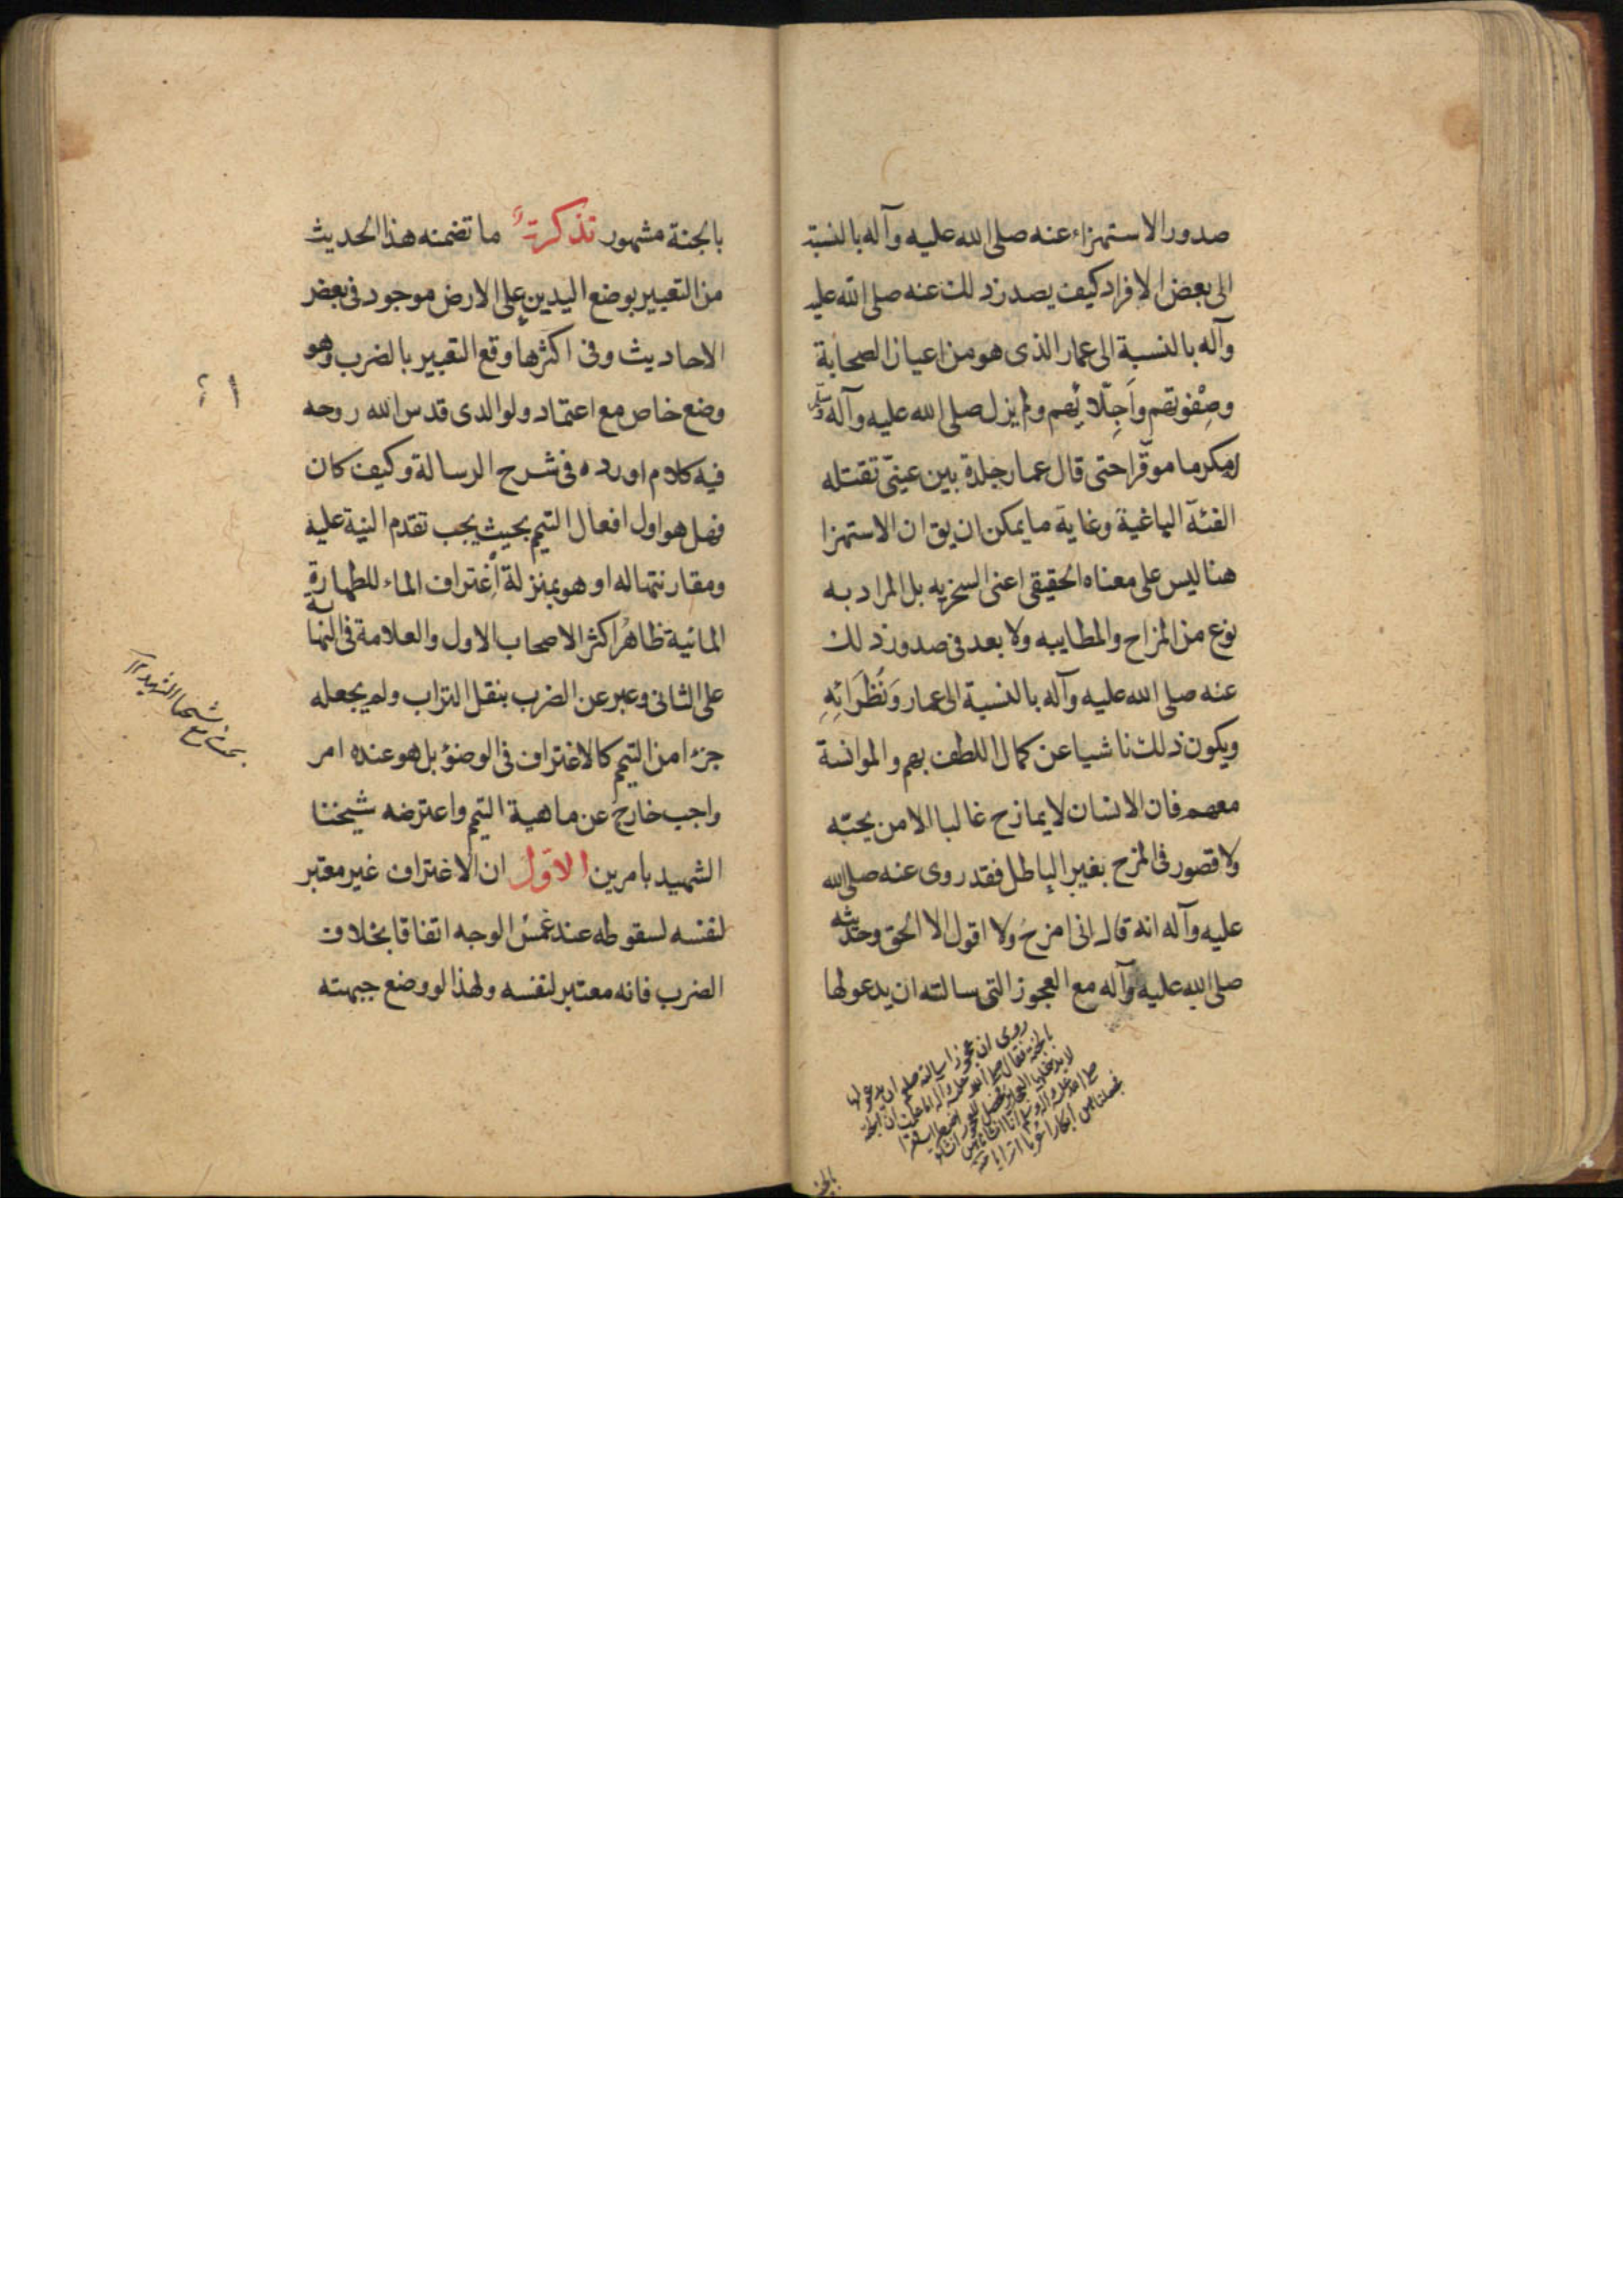 صدور الاستهزاء عنه صلى الله عليه وآله بالنسبة
الى بعض الافراد كيف يصدر ذلك عنه صلى الله عليه
وآله بالنسبة الى عمار الذى هو من اعيان الصحابة
وصِفْوتهم واَجِلّائِهم ولم يزل صلى الله عليه وآله وسلم
مكرما موقّرا حتى قال عمار جلدة بين عينىّ تقتله
الفئة الباغية وغاية ما يمكن ان يق ان الاستهزا
هنا ليس على معناه الحقيقى اعنى السخريه بل المراد به
نوع من المزاح والمطايبه ولا بعد فى صدور ذلك
عنه صلى الله عليه وآله بالنسبة الى عمار وَنُظَرَائِهِ
ويكون ذلك ناشيا عن كمال اللطف بهم والموانسة
معهم فان الانسان لا يمازح غالبا الا من يحبّه
ولا قصور فى المزح بغير الباطل فقد روى عنه صلى الله
عليه وآله انه قال انى امزح ولا اقول الا الحق وحديثه
صلى الله عليه وآله مع العجوز التى سالته ان يدعو لها
روى ان عجوزا سالته صلعم ان يدعو لها
بالجنة فقال صلى الله عليه وآله اما علمت ان الجنة
لا يدخلها العجايز
صلى الله عليه وآله وسلم انا انشاناهن
فجعلناهن ابكارا عُربا اترابا
بالجنة
بالجنة مشهور تذكرة ما تضمنه هذا الحديث
من التعبير بوضع اليدين على الارض موجود فى بعض
الاحاديث وفى اكثرها وقع التعبير بالضرب وهو
وضع خاص مع اعتماد ولوالدى قدس الله روحه
فيه كلام اورده فى شرح الرسالة وكيف كان
فهل هو اول افعال التيمم بحيث يجب تقدم النية عليه
ومقارنتها له او هو بمنزلة اِغتراف الماء للطهارة
المائية ظاهرُ اكثر الاصحاب الاول والعلامة فى النهاية
على الثانى وعبر عن الضرب بنقل التراب ولم يجعله
جزءا من التيمم كالاغتراف فى الوضوء بل هو عنده امر
واجب خارج عن ماهية التيمم واعترضه شيخنا
الشهيد بامرين الاوّل ان الاغتراف غير معتبر
لنفسه لسقوطه عند غمس الوجه اتفاقا بخلاف
الضرب فانه معتبر لنفسه ولهذا لو وضع جبهته
بحث مع شيخنا الشهيد